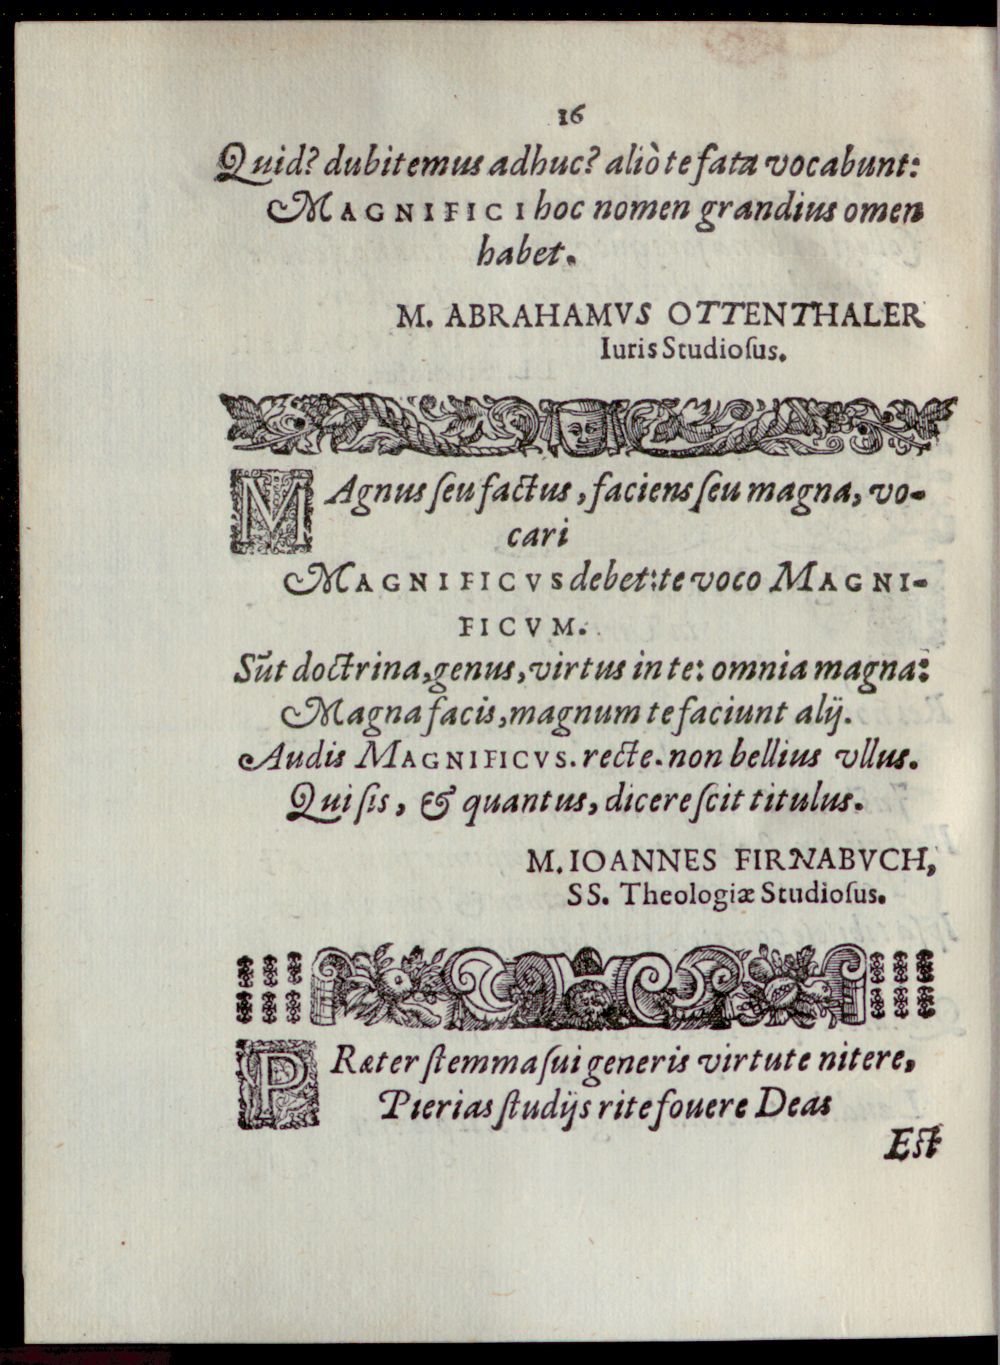 16
Quid? dubitemus adhuc? aliò te fata vocabunt:
MAGNIFICI hoc nomen grandius omen
habet.
M. ABRAHAMVS OTTENTHALER
Iuris Studioſus.
MAgnus ſeu factus, faciens ſeu magna, vo-
cari
MAGNIFICVS debet: te voco MAGNI-
FICVM.
Sūt doctrina, genus, virtus in te: omnia magna:
Magna facis, magnum te faciunt alij.
Audis MAGNIFICVS. recte. non bellius vllus.
Qui ſis, & quantus, dicere ſcit titulus.
M. IOANNES FIRNABVCH,
SS. Theologiæ Studioſus.
PRæter ſtemma ſui generis virtute nitere,
Pierias ſtudijs rite fouere Deas
Eſt